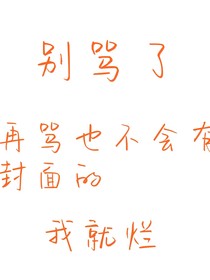 别骂了
再骂也不会有
封面的
我就烂